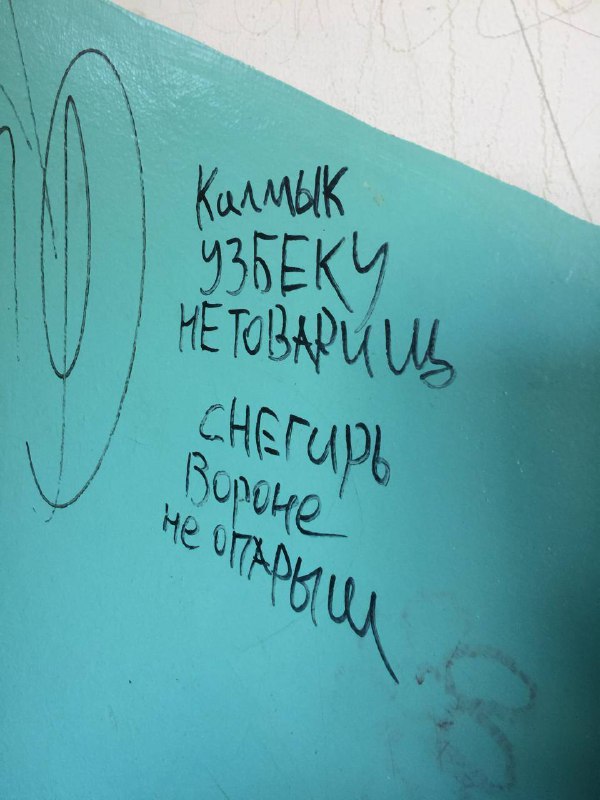 Калмык
УЗБЕКУ
НЕ ТОВАРИЩ
СНЕГИРЬ
Вороне
не ОПАРЫШ